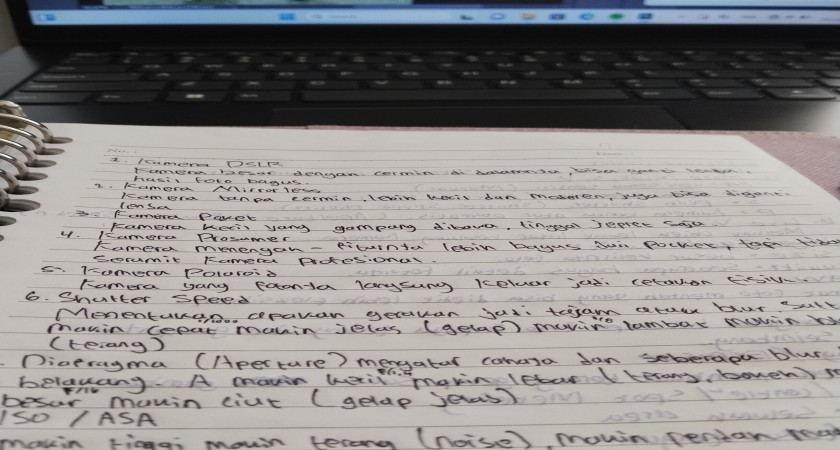 1. Kamera DSLR
Kamera besar dengan cermin di dalamnya, bisa ganti lensa,
hasil foto bagus.
2. Kamera Mirrorless
Kamera tanpa cermin, lebih kecil dan moderen, juga bisa diganti
lensa
3. Kamera Poket
Kamera kecil yang gampang dibawa, tinggal jepret saja
4. Kamera Prosumer
Kamera menengah - fiturnya lebih bagus dari pocket, tapi tidak
serumit kamera Profesional.
5. Kamera Polaroid
Kamera yang fotonya langsung keluar jadi cetakan fisik.
6. Shutter Speed
Menentukan apakah gerakan jadi tajam atau blur
makin cepat makin jelas (gelap) makin lambat makin
(terang)
Diafragma (Aperture) mengatur cahaya dan seberapa blur
belakang. A makin kecil makin lebar (terang, bokeh)
besar F/16 makin ciut (gelap jelas)
ISO / ASA
makin tinggi makin terang (noise), makin rendah